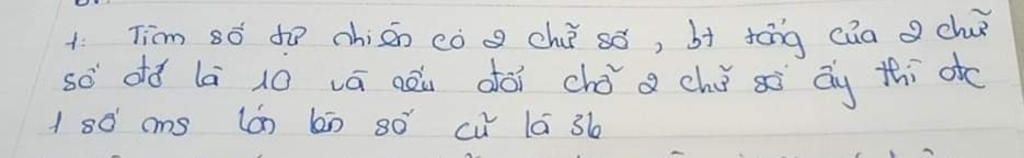 1: Tìm số tự nhiên có 2 chữ số, bt tổng của 2 chữ
số đó là 10 và nếu đổi chỗ 2 chữ số ấy thì đc
1 số ms lớn hơn số cũ là 36